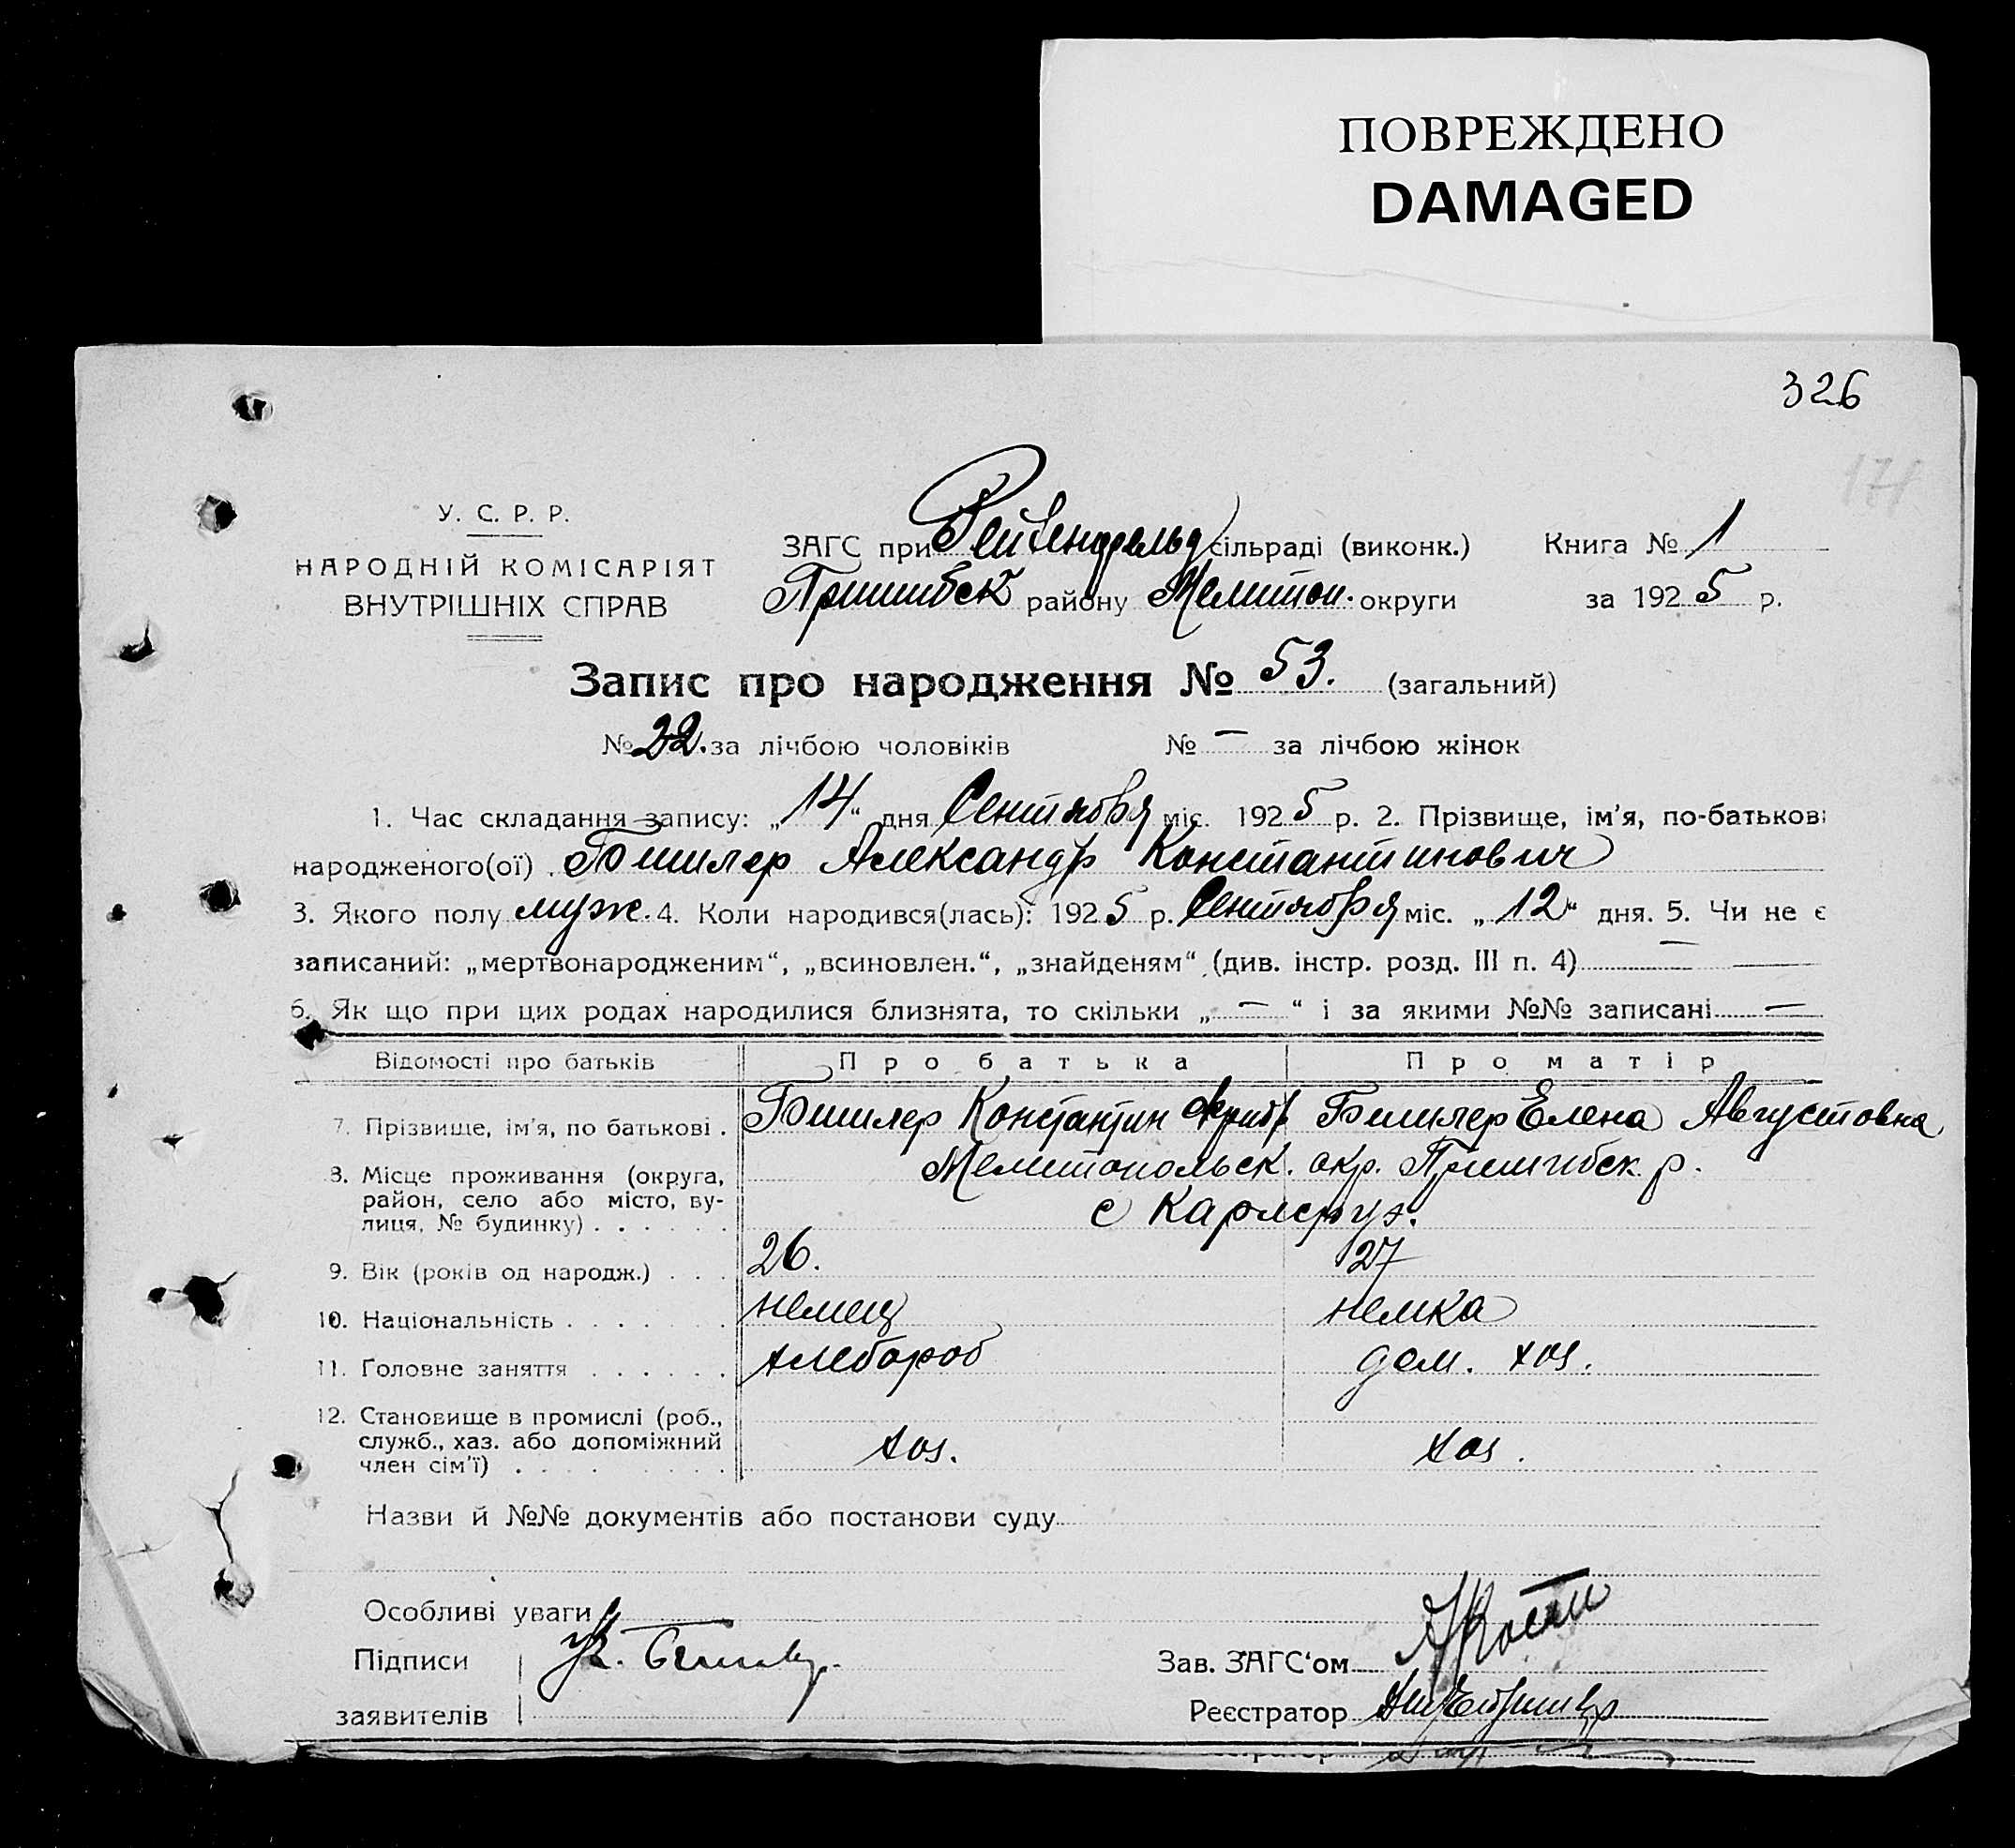 ПОВРЕЖДЕНО
DAMAGED
326
174
У. С. Р. Р.
НАРОДНІЙ КОМІСАРІЯТ
ВНУТРІШНІХ СПРАВ
ЗАГС при Рейхенфельд сільраді (виконк.) Книга № 1
Пришибск району Мелитоп. округи за 1925 р.
Запис про народження № 53. (загальний)
№ 22. за лічбою чоловіків № — за лічбою жінок
1. Час складання запису: „14“ дня Сентября міс. 1925 р. 2. Прізвище, ім'я, по-батькові
народженого(ої) Бишлер Александр Константинович
3. Якого полу муж. 4. Коли народився(лась): 1925 р. Сентября міс. „12“ дня. 5. Чи не є
записаний: „мертвонародженим“, „всиновлен.“, „знайденям“ (див. інстр. розд. III п. 4) —
6. Як що при цих родах народилися близнята, то скільки „—“ і за якими №№ записані —
Відомості про батьків Про батька Про матір
7. Прізвище, ім'я, по батькові . Бишлер Константин Бишлер Елена Августовна
8. Місце проживання (округа, район, село або місто, вулиця, № будинку) . . . . . . Мелитопольск. окр. Пришибск. р.
с Карлсруэ.
9. Вік (років од народж.) . . . 26. 27
10. Національність . . . . . . . немец немка
11. Головне заняття . . . . . . хлебороб дом. хоз.
12. Становище в промислі (роб., служб., хаз. або допоміжний член сім'ї) . . . . . . . . хоз. хоз.
Назви й №№ документів або постанови суду
Особливі уваги
Підписи
заявителів
Зав. ЗАГС'ом
Реєстратор